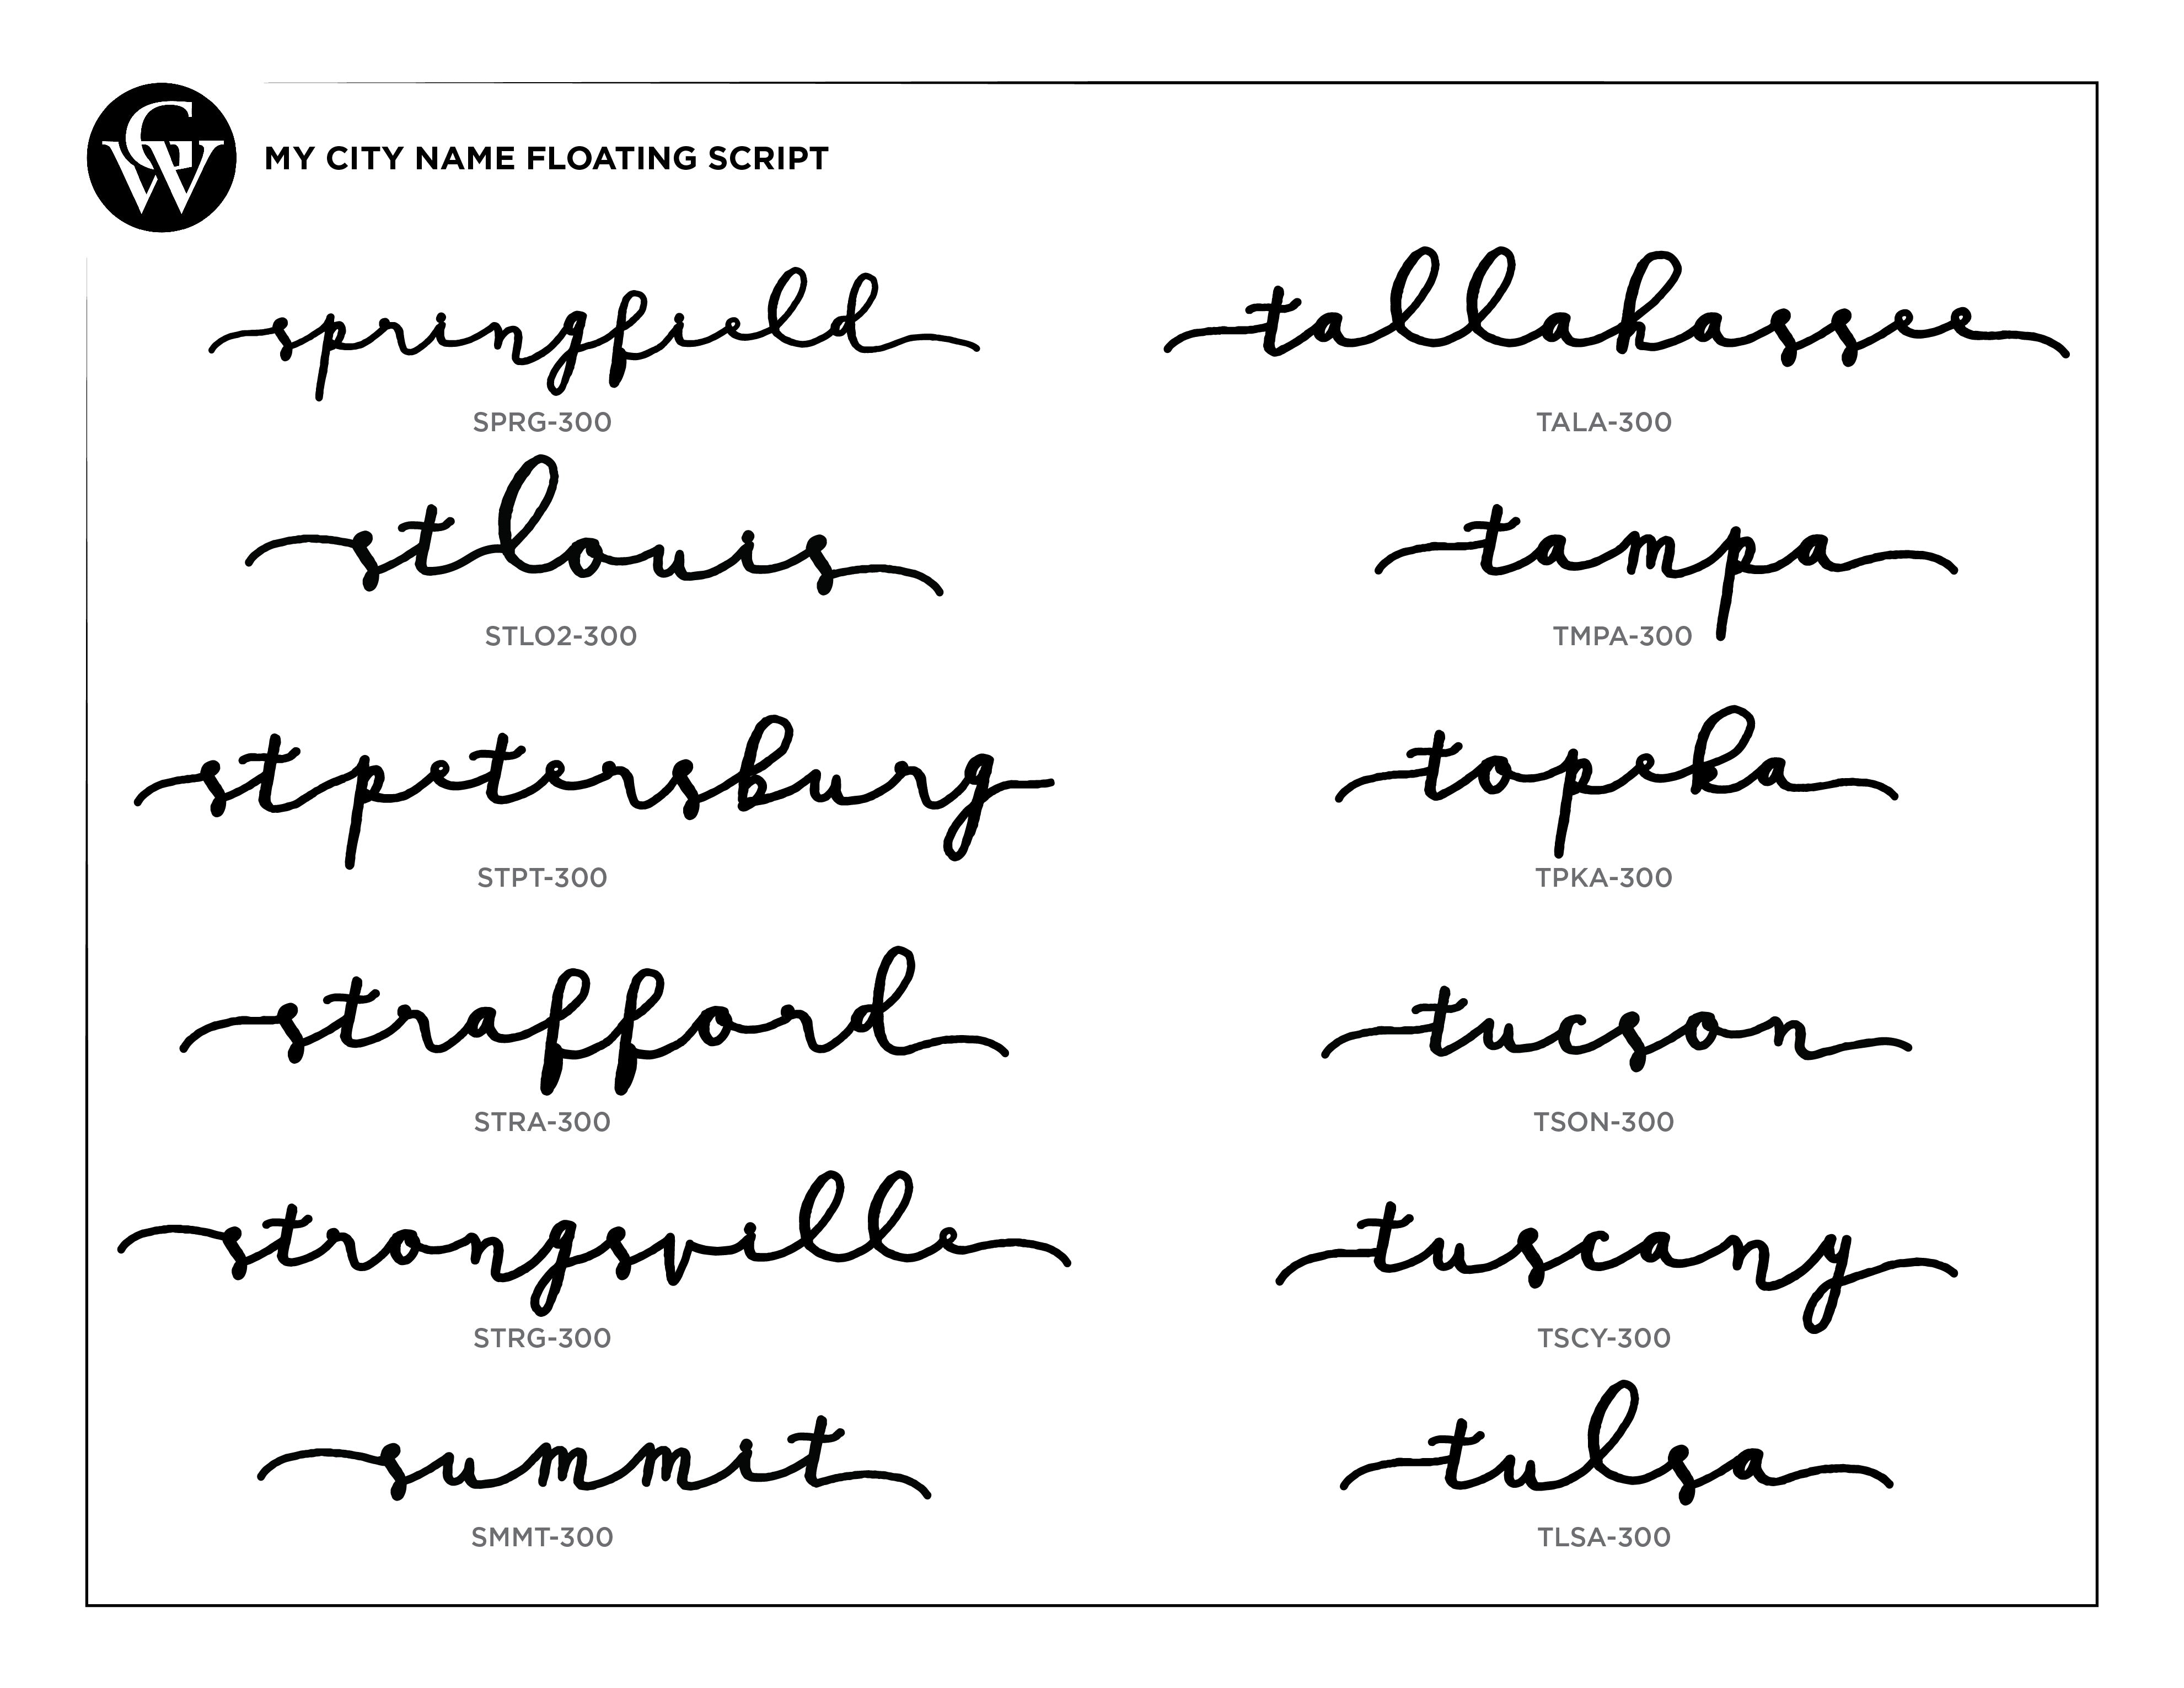 GW
MY CITY NAME FLOATING SCRIPT
springfield
SPRG-300
stlouis
STLO2-300
stpetersburg
STPT-300
strafford
STRA-300
strongsville
STRG-300
summit
SMMT-300
tallahassee
TALA-300
tampa
TMPA-300
topeka
TPKA-300
tucson
TSON-300
tuscany
TSCY-300
tulsa
TLSA-300